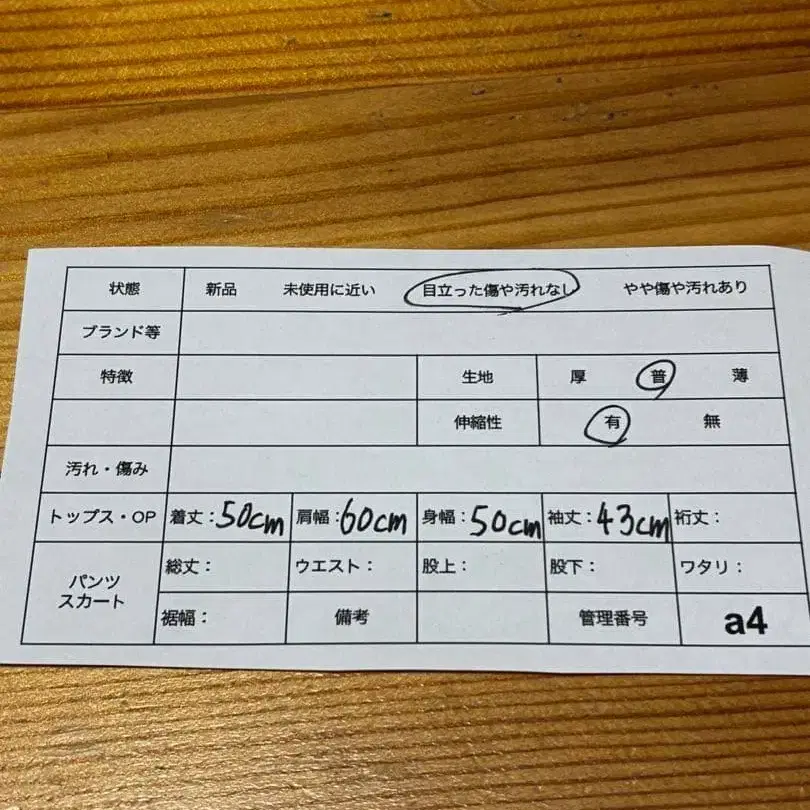 状態 新品 未使用に近い 目立った傷や汚れなし やや傷や汚れあり
ブランド等
特徴 生地 厚 普 薄
伸縮性 有 無
汚れ・傷み
トップス・OP 着丈：50cm 肩幅：60cm 身幅：50cm 袖丈：43cm 裄丈：
パンツ
スカート
総丈： ウエスト： 股上： 股下： ワタリ：
裾幅： 備考 管理番号 a4